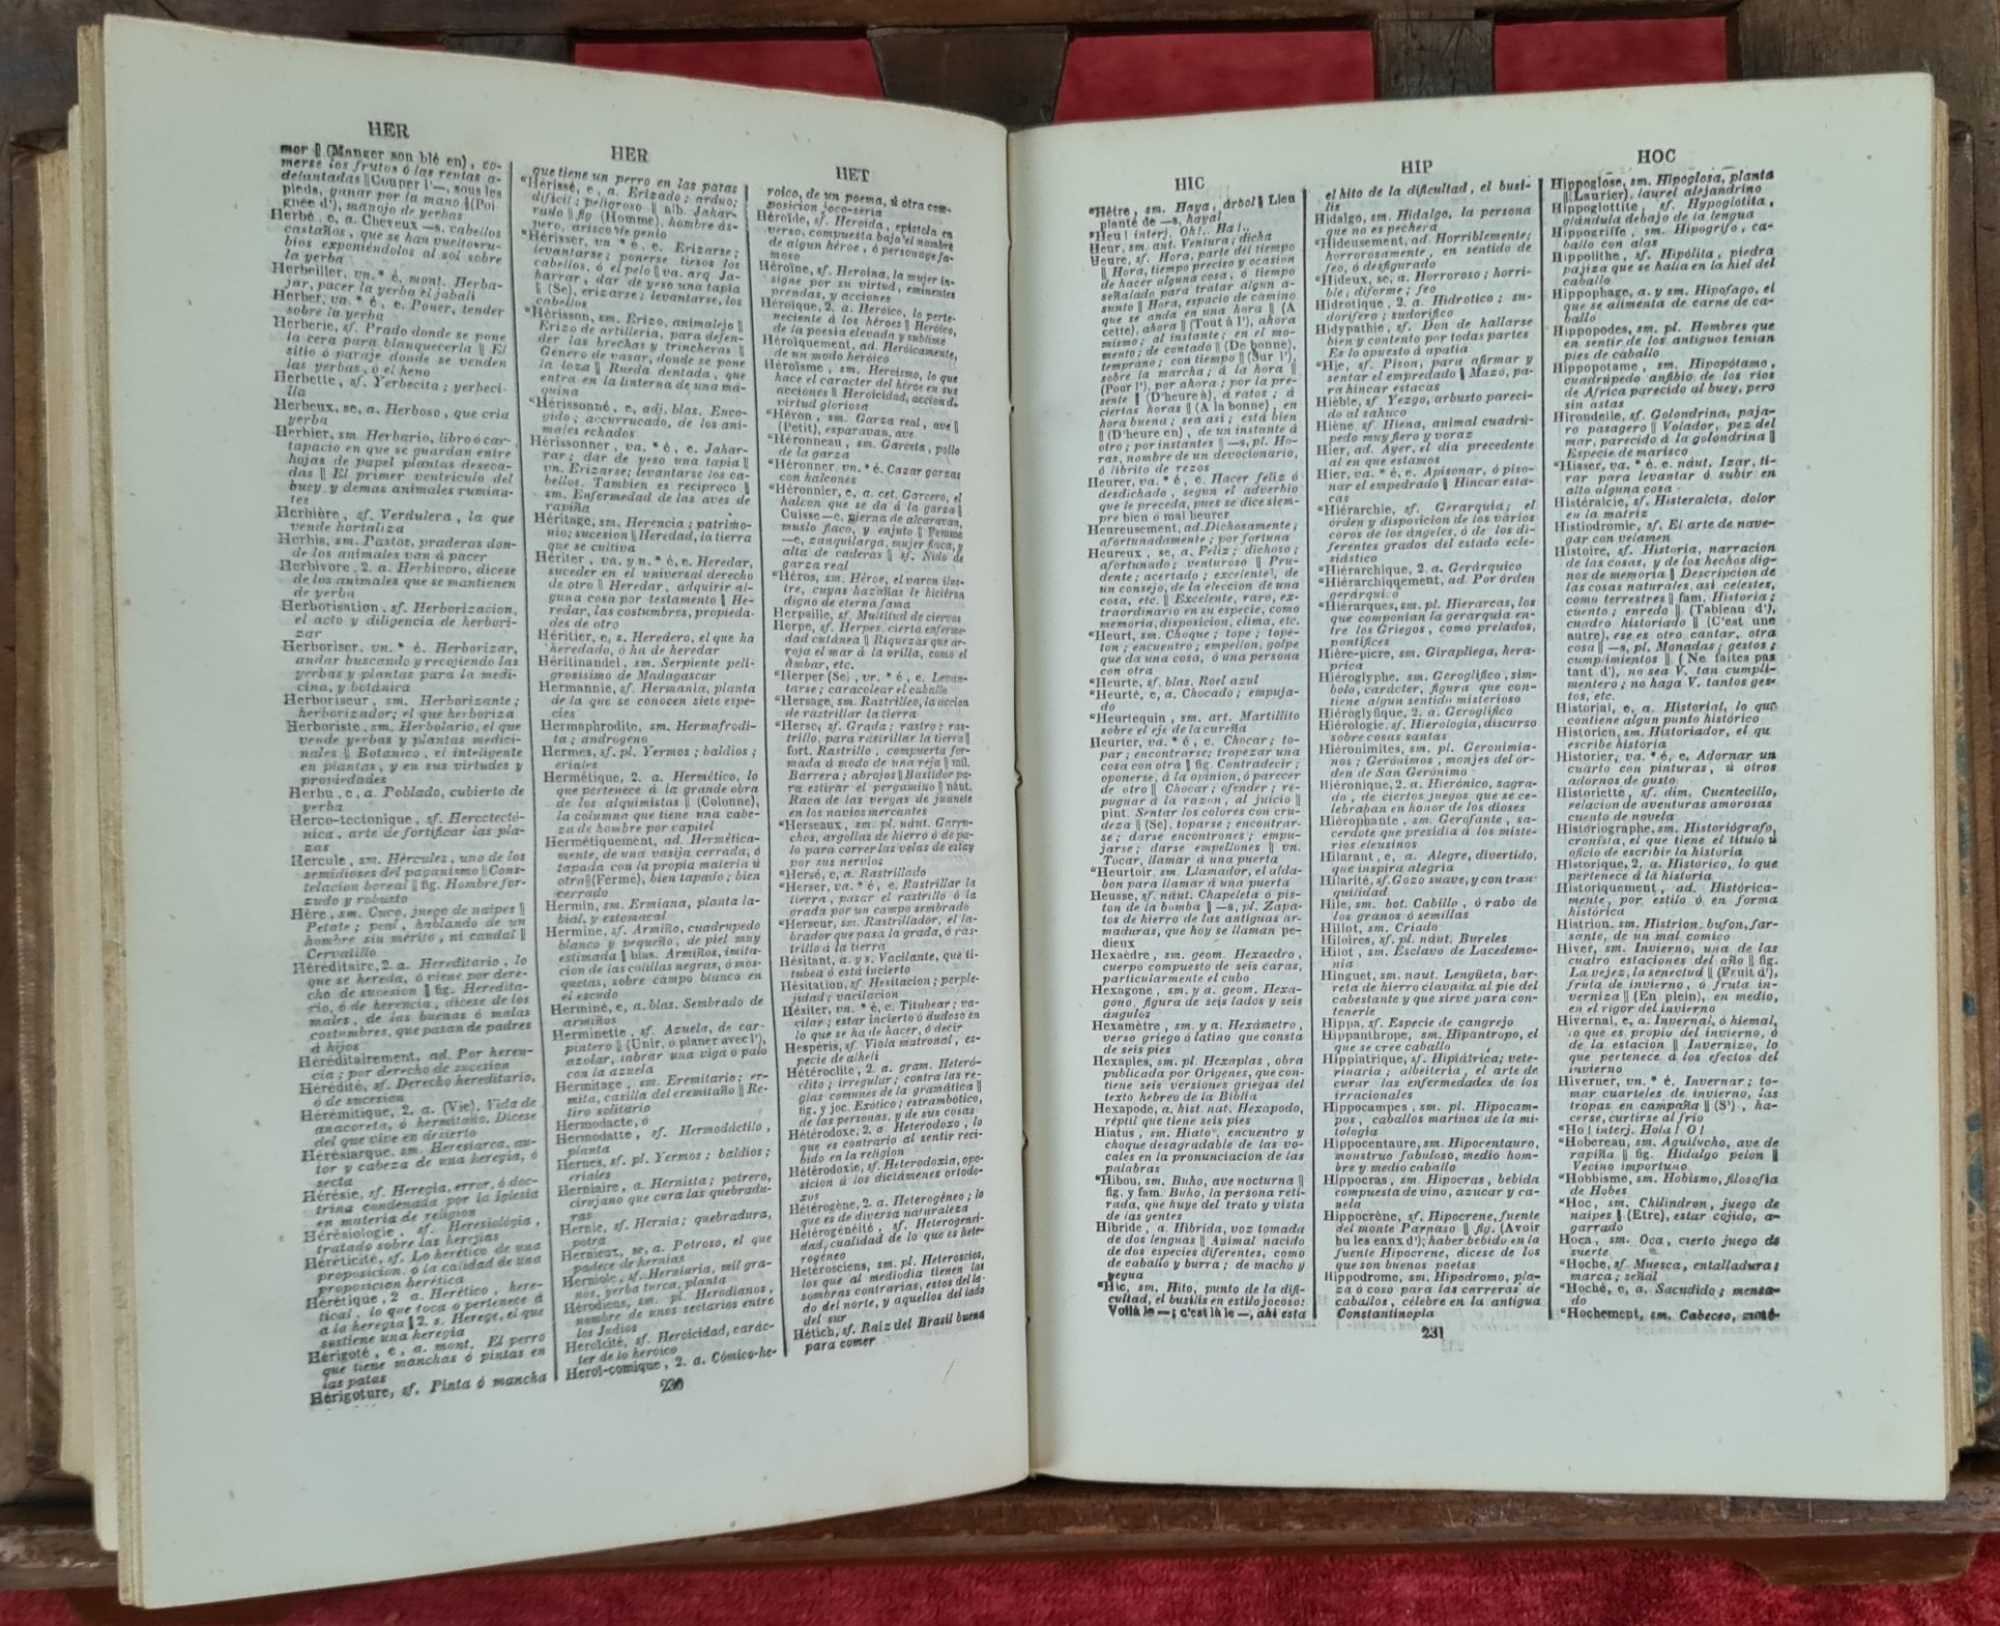 HER
mor || (Manger son blé en), co-
merse los frutos ó las rentas a-
delantadas || Couper l'—, sous les
pieds, ganar por la mano || (Poi-
gnée d'), manojo de yerbas
Herbé, e, a. Cheveux —s, cabellos
castaños, que se han vuelto ru-
bios exponiéndolos al sol sobre
la yerba
Herbeiller, vn. * é, mont. Herba-
jar, pacer la yerba el jabali
Herber, va. * é, e. Poner, tender
sobre la yerba
Herberie, sf. Prado donde se pone
la cera para blanquecerla || El
sitio ó paraje donde se venden
las yerbas, ó el heno
Herbette, sf. Yerbecita; yerbeci-
lla
Herbeux, se, a. Herboso, que cria
yerba
Herbier, sm. Herbario, libro ó car-
tapacio en que se guardan entre
hojas de papel plantas deseca-
das || El primer ventriculo del
buey y demas animales rumina-
tes
Herbière, sf. Verdulera, la que
vende hortaliza
Herbis, sm. Pastos, praderas don-
de los animales van á pacer
Herbivore, 2. a. Herbívoro, dícese
de los animales que se mantienen
de yerba
Herborisation, sf. Herborizacion,
el acto y diligencia de herbori-
zar
Herboriser, vn. * é. Herborizar,
andar buscando y recojiendo las
yerbas y plantas para la medi-
cina, y botánica
Herboriseur, sm. Herborizante;
herborizador; el que herboriza
Herboriste, sm. Herbolario, el que
vende yerbas y plantas medici-
nales || Botanico, el inteligente
en plantas, y en sus virtudes y
propiedades
Herbu, e, a. Poblado, cubierto de
yerba
Herco-tectonique, sf. Hercotectó-
nica, arte de fortificar las pla-
zas
Hercule, sm. Hércules, uno de los
semidioses del paganismo || Cons-
telacion boreal || fig. Hombre for-
zudo y robusto
Hère, sm. Cuco, juego de naipes ||
Petate; peal, hablando de un
hombre sin mérito, ni caudal ||
Cervatillo
Héréditaire, 2. a. Hereditario, lo
que se hereda, ó viene por dere-
cho de sucesion || fig. Heredita-
rio, ó de herencia, dícese de los
males, de las buenas ó malas
costumbres, que pasan de padres
á hijos
Héréditairement, ad. Por heren-
cia; por derecho de sucesion
Hérédité, sf. Derecho hereditario,
ó de sucesion
Hérémitique, 2. a. (Vie), Vida de
anacoreta, ó hermitaño. Dícese
del que vive en desierto
Hérésiarque, sm. Heresiarca, au-
tor y cabeza de una heregía, ó
secta
Hérésie, sf. Heregía, error, ó doc-
trina condenada por la iglesia
en materia de religion
Hérésiologie, sf. Heresiológia,
tratado sobre las heregías
Héréticité, sf. Lo herético de una
proposicion, ó la calidad de una
proposicion herética
Hérétique, 2 a. Herético, here-
tical, lo que toca ó pertenece á
a la heregía || 2. s. Herege, el que
sustiene una heregía
Hérigoté, e, a. mont. El perro
que tiene manchas ó pintas en
las patas
Hérigoture, sf. Pinta ó mancha
HER
que tiene un perro en las patas
*Hérissé, e, a. Erizado; arduo;
difícil; peligroso || alb. Jahar-
rado || fig (Homme), hombre ás-
pero, arisco de genio
*Hérisser, vn * é, e. Erizarse;
levantarse; ponerse tiesos los
cabellos, ó el pelo || va. arq Ja-
harrar, dar de yeso una tapia
|| (Se), erizarse; levantarse, los
cabellos
*Hérisson, sm. Erizo, animalejo ||
Erizo de artillería, para defen-
der las brechas y trincheras ||
Género de vasar, donde se pone
la loza || Rueda dentada, que
entra en la linterna de una má-
quina
*Hérissonné, e, adj. blas. Enco-
gido; accurrucado, de los ani-
males echados
Hérissonner, va. * é, e. Jahar-
rar; dar de yeso una tapia ||
vn. Erizarse; levantarse los ca-
bellos. Tambien es recíproco ||
sm. Enfermedad de las aves de
rapiña
Héritage, sm. Herencia; patrimo-
nio; sucesion || Heredad, la tierra
que se cultiva
Hériter, va. y n. * é, e. Heredar,
suceder en el universal derecho
de otro || Heredar, adquirir al-
guna cosa por testamento || He-
redar, las costumbres, propieda-
des de otro
Héritier, e, s. Heredero, el que ha
heredado, ó ha de heredar
Héritinandel, sm. Serpiente peli-
grosísimo de Madagascar
Hermannie, sf. Hermania, planta
de la que se conocen siete espe-
cies
Hermaphrodito, sm. Hermafrodi-
ta; andrógeno
Hermes, sf. pl. Yermos; baldíos;
eriales
Hermétique, 2. a. Hermético, lo
que pertenece á la grande obra
de los alquimistas || (Colonne),
la columna que tiene una cabe-
za de hombre por capitel
Hermétiquement, ad. Hermética-
mente, de una vasija cerrada, ó
tapada con la propia materia ú
otra || (Fermé), bien tapado; bien
cerrado
Hermin, sm. Ermiana, planta la-
bial, y estomacal
Hermine, sf. Armiño, cuadrupedo
blanco y pequeño, de piel muy
estimada || blas. Armiños, imita-
cion de las colillas negras, ó mos-
quetas, sobre campo blanco en
el escudo
Herminé, e, a. blas. Sembrado de
armiños
Herminette, sf. Azuela, de car-
pintero || (Unir, ó planer avec l'),
azolar, labrar una viga ó palo
con la azuela
Hermitage, sm. Eremitario; er-
mita, casilla del eremitaño || Re-
tiro solitario
Hermodacte, ó
Hermodatte, sf. Hermodáctilo,
planta
Hernes, sf. pl. Yermos; baldíos;
eriales
Herniaire, a. Hernista; potrero,
cirujano que cura las quebradu-
ras
Hernie, sf. Hernia; quebradura,
potra
Hernieux, se, a. Potroso, el que
padece de hernias
Herniole, sf. Herniaria, mil gra-
nos, yerba turca, planta
Hérodiens, sm. pl. Herodianos,
nombre de unos sectarios entre
los Judíos
Heroïcité, sf. Heroicidad, carác-
ter de lo heroico
Heroï-comique, 2. a. Cómico-he-
HET
roico, de un poema, ú otra com-
posicion joco-seria
Héroïde, sf. Heroida, epístola en
verso, compuesta bajo el nombre
de algun héroe, ó personage fa-
moso
Héroïne, sf. Heroína, la mujer in-
signe por su virtud, eminentes
prendas, y acciones
Héroïque, 2. a. Heróico, lo perte-
neciente á los héroes || Heróico,
de la poesía elevada y sublime
Héroïquement, ad. Heróicamente,
de un modo heróico
Héroïsme, sm. Heroismo, lo que
hace el caracter del héroe en sus
acciones || Heroicidad, accion d.
virtud gloriosa
*Héron, sm. Garza real, ave ||
(Petit), esparavan, ave
*Héronneau, sm. Garceta, pollo
de la garza
*Héronner, vn. * é. Cazar garzas
con halcones
*Héronnier, e, a. cet. Garcero, el
halcon que se da á la garza ||
Cuisse —e, pierna de alcaravan,
muslo flaco, y enjuto || Femme
—e, zanquilarga, mujer flaca, y
alta de caderas || sf. Nido de
garza real
*Héros, sm. Héroe, el varon ilus-
tre, cuyas hazañas le hicieron
digno de eterna fama
Herpaille, sf. Multitud de ciervos
Herpe, sf. Herpes, cierta enferme-
dad cutánea || Riquezas que ar-
roja el mar á la orilla, como el
ámbar, etc.
*Herper (Se), vr. * é, e. Levan-
tarse; caracolear el caballo
*Hersage, sm. Rastrilleo, la accion
de rastrillar la tierra
*Herse, sf. Grada; rastro; ras-
trillo, para rastrillar la tierra ||
fort. Rastrillo, compuerta for-
mada á modo de una reja || mil.
Barrera; abrojos || Bastidor pa-
ra estirar el pergamino || náut.
Raca de las vergas de juanete
en los navíos mercantes
*Herseaux, sm. pl. náut. Garru-
chos, argollas de hierro ó de pa-
lo para correr las velas de estay
por sus nervios
*Hersé, e, a. Rastrillado
*Herser, va. * é, e. Rastrillar la
tierra, pasar el rastrillo ó la
grada por un campo sembrado
*Herseur, sm. Rastrillador, el la-
brador que pasa la grada, ó ras-
trillo á la tierra
Hésitant, a. y s. Vacilante, que ti-
tubea ó está incierto
Hésitation, sf Hesitacion; perple-
jidad; vacilacion
Hésiter, vn. * é, e. Titubear; va-
cilar; estar incierto ó dudoso en
lo que se ha de hacer, ó decir
Hespéris, sf. Viola matronal, es-
pecie de alhelí
Hétéroclite, 2. a. gram. Heteró-
clito; irregular; contra las re-
glas comunes de la gramática ||
fig. y joc. Exótico; estrambótico,
de las personas, y de sus cosas
Hétérodoxe, 2. a Heterodoxo, lo
que es contrario al sentir reci-
bido en la religion
Hétérodoxie, sf. Heterodoxia, opo-
sicion á los dictámenes ortodo-
xus
Hétérogène, 2. a. Heterogéneo; lo
que es de diversa naturaleza
Hétérogénéité, sf. Heterogenei-
dad, cualidad de lo que es hete-
rogéneo
Hétérosciens, sm. pl. Heteroscios,
los que al mediodia tienen las
sombras contrarias, estos del la-
do del norte, y aquellos del lado
del sur
Hétich, sf. Raiz del Brasil buena
para comer
230
HIC
*Hêtre, sm. Haya, árbol || Lieu
planté de —s, hayal
*Heu! interj. Oh!.. Ha!..
Heur, sm. ant. Ventura; dicha
Heure, sf. Hora, parte del tiempo
|| Hora, tiempo preciso y ocasion
de hacer alguna cosa, ó tiempo
señalado para tratar algun a-
sunto || Hora, espacio de camino
que se anda en una hora || (A
cette), ahora || (Tout à l'), ahora
mismo; al instante; en el mo-
mento; de contado || (De bonne),
temprano; con tiempo || (Sur l'),
sobre la marcha; á la hora ||
(Pour l'), por ahora; por la pre-
sente || (D'heure à), á ratos; á
ciertas horas || (A la bonne), en
hora buena; sea asi; está bien
|| (D'heure en), de un instante á
otro; por instantes || —s, pl. Ho-
ras, nombre de un devocionario,
ó librito de rezos
Heurer, va. * é, e. Hacer feliz ó
desdichado, segun el adverbio
que le preceda, pues se dice siem-
pre bien ó mal heurer
Heureusement, ad. Dichosamente;
afortunadamente; por fortuna
Heureux, se, a. Feliz; dichoso;
afortunado; venturoso || Pru-
dente; acertado; excelente, de
un consejo, de la eleccion de una
cosa, etc. || Excelente, raro, ex-
traordinario en su especie, como
memoria, disposicion, clima, etc.
*Heurt, sm. Choque; tope; tope-
ton; encuentro; empellon, golpe
que da una cosa, ó una persona
con otra
*Heurte, sf. blas. Roel azul
*Heurté, e, a. Chocado; empuja-
do
*Heurtequin, sm. art. Martillito
sobre el eje de la cureña
*Heurter, va. * é, e. Chocar; to-
par; encontrarse; tropezar una
cosa con otra || fig. Contradecir;
oponerse, á la opinion, ó parecer
de otro || Chocar; ofender; re-
pugnar á la razon, al juicio ||
pint. Sentar los colores con cru-
deza || (Se), toparse; encontrar-
se; darse encontrones; empu-
jarse; darse empellones || vn.
Tocar, llamar á una puerta
*Heurtoir, sm. Llamador, el alda-
bon para llamar á una puerta
Heusse, sf. náut. Chapeleta ó pis-
ton de la bomba || —s, pl. Zapa-
tos de hierro de las antiguas ar-
maduras, que hoy se llaman pe-
dieux
Hexaèdre, sm. geom. Hexaedro,
cuerpo compuesto de seis caras,
particularmente el cubo
Hexagone, sm. y a. geom. Hexa-
gono, figura de seis lados y seis
ángulos
Hexamètre, sm. y a. Hexámetro,
verso griego ó latino que consta
de seis pies
Hexaples, sm. pl. Hexaplas, obra
publicada por Orígenes, que con-
tiene seis versiones griegas del
texto hebreo de la Biblia
Hexapode, a. hist. nat. Hexapodo,
réptil que tiene seis pies
Hiatus, sm. Hiato, encuentro y
choque desagradable de las vo-
cales en la pronunciacion de las
palabras
*Hibou, sm. Buho, ave nocturna ||
fig. y fam. Buho, la persona reti-
rada, que huye del trato y vista
de las gentes
Hibride, a. Hibrida, voz tomada
de dos lenguas || Animal nacido
de dos especies diferentes, como
de caballo y burra; de macho y
yegua
*Hic, sm. Hito, punto de la difi-
cultad, el busílis en estilo jocoso:
Voilà le —; c'est là le —, ahí esta
HIP
el hito de la dificultad, el busi-
lis
Hidalgo, sm. Hidalgo, la persona
que no es pechera
*Hideusement, ad. Horriblemente;
horrorosamente, en sentido de
feo, ó desfigurado
*Hideux, se, a. Horroroso; horri-
ble; diforme; feo
Hidrotique, 2. a. Hidrotico; su-
dorífero; sudorífico
Hidypathie, sf. Don de hallarse
bien y contento por todas partes
Es lo opuesto á apatía
*Hie, sf. Pison, para afirmar y
sentar el empredado || Mazo, pa-
ra hincar estacas
Hièble, sf Yezgo, arbusto pareci-
do al sahuco
Hiène, sf. Hiena, animal cuadrú-
pedo muy fiero y voraz
Hier, ad. Ayer, el dia precedente
al en que estamos
Hier, va. * é, e. Apisonar, ó piso-
nar el empedrado || Hincar esta-
cas
*Hiérarchie, sf. Gerarquía; el
órden y disposicion de los varios
coros de los ángeles, ó de los di-
ferentes grados del estado ecle-
siástico
*Hiérarchique, 2. a. Gerárquico
*Hiérarchiquement, ad. Por órden
gerárquico
*Hiérarques, sm. pl. Hierarcas, los
que componian la gerarquía en-
tre los Griegos, como prelados,
pontífices
Hière-picre, sm. Girapliega, hera-
prica
Hiéroglyphe, sm. Geroglífico, sím-
bolo, carácter, figura que con-
tiene algun sentido misterioso
Hiéroglyfique, 2. a. Geroglífico
Hiérologie, sf. Hierologia, discurso
sobre cosas santas
Hiéronimites, sm. pl. Geronimia-
nos; Gerónimos, monjes del ór-
den de San Gerónimo
Hiéronique, 2. a. Hierónico, sagra-
do, de ciertos juegos que se ce-
lebraban en honor de los dioses
Hiérophante, sm. Gerofante, sa-
cerdote que presidia á los miste-
rios eleusinos
Hilarant, e, a. Alegre, divertido,
que inspira alegría
Hilarité, sf. Gozo suave, y con tran-
quilidad
Hile, sm. bot. Cabillo, ó rabo de
los granos ó semillas
Hillot, sm. Criado
Hiloires, sf. pl. náut. Bureles
Hilot, sm. Esclavo de Lacedemo-
nia
Hinguet, sm. naut. Lengüeta, bar-
reta de hierro clavada al pie del
cabestante y que sirve para con-
tenerle
Hippa, sf. Especie de cangrejo
Hippanthrope, sm. Hipántropo, el
que se cree caballo
Hippiatrique, sf. Hipiátrica; vete-
rinaria; albeitería, el arte de
curar las enfermedades de los
irracionales
Hippocampes, sm. pl. Hipocam-
pos, caballos marinos de la mi-
tologia
Hippocentaure, sm. Hiporentauro,
monstruo fabuloso, medio hom-
bre y medio caballo
Hippocras, sm. Hipocras, bebida
compuesta de vino, azucar y ca-
nela
Hippocrène, sf. Hipocrene, fuente
del monte Parnaso || fig. (Avoir
bu les eaux d'); haber bebido en la
fuente Hipocrene, dícese de los
que son buenos poetas
Hippodrome, sm. Hipodromo, pla-
za ó coso para las carreras de
caballos, célebre en la antigua
Constantinopla
HOC
Hippoglose, sm. Hipoglosa, planta
|| (Laurier), laurel alejandrino
Hippoglottite, sf. Hypoglotita,
glándula debajo de la lengua
Hippogriffe, sm. Hipogrifo, ca-
ballo con alas
Hippolithe, sf. Hipólita, piedra
pajiza que se halla en la hiel del
caballo
Hippophage, a. y sm. Hipofago, el
que se alimenta de carne de ca-
ballo
Hippopodes, sm. pl. Hombres que
en sentir de los antiguos tenian
pies de caballo
Hippopotame, sm. Hipopótamo,
cuadrúpedo anfibio de los rios
de Africa parecido al buey, pero
sin astas
Hirondelle, sf. Golondrina, paja-
ro pasagero || Volador, pez del
mar, parecido á la golondrina ||
Especie de marisco
*Hisser, va. * é, e. náut. Izar, ti-
rar para levantar ó subir en
alto alguna cosa
Histéralcie, sf. Histeralcia, dolor
en la matriz
Histiodromie, sf. El arte de nave-
gar con velamen
Histoire, sf. Historia, narracion
de las cosas, y de los hechos dig-
nos de memoria || Descripcion de
las cosas naturales, asi celestes,
como terrestres || fam. Historia;
cuento; enredo || (Tableau d'),
cuadro historiado || (C'est une
autre), ese es otro cantar, otra
cosa || —s, pl. Monadas; gestos;
cumpimientos || (Ne faites pas
tant d'), no sea V. tan cumpli-
mentero; no haga V. tantos ges-
tos, etc.
Historial, e, a. Historial, lo que
contiene algun punto histórico
Historien, sm. Historiador, el qu
escribe historia
Historier, va. * é, e. Adornar un
cuarto con pinturas, ú otros
adornos de gusto
Historiette, sf. dim. Cuentecillo,
relacion de aventuras amorosas
cuento de novela
Historiographe, sm. Historiógrafo,
cronista, el que tiene el título ú
oficio de escribir la historia
Historique, 2. a. Histórico, lo que
pertenece á la historia
Historiquement, ad. Histórica-
mente, por estilo ó en forma
histórica
Histrion, sm. Histrion, bufon, far-
sante, de un mal comico
Hiver, sm. Invierno, una de las
cuatro estaciones del año || fig.
La vejez, la senectud || (Fruit d'),
fruta de invierno, ó fruta in-
verniza || (En plein), en medio,
en el rigor del invierno
Hivernal, e, a. Invernal, ó hiemal,
lo que es propio del invierno, ó
de la estacion || Invernizo, lo
que pertenece á los efectos del
invierno
Hiverner, vn. * é. Invernar; to-
mar cuarteles de invierno, las
tropas en campaña || (S'), ha-
cerse, curtirse al frio
*Ho! interj. Hola! O!
*Hobereau, sm. Aguilucho, ave de
rapiña || fig. Hidalgo pelon ||
Vecino importuno
*Hobbisme, sm. Hobismo, filosofía
de Hobes
*Hoc, sm. Chilindron, juego de
naipes || (Etre), estar cojido, a-
garrado
Hoca, sm. Oca, cierto juego de
suerte
*Hoche, sf Muesca, entalladura;
marca; señal
*Hoché, e, a. Sacudido; menea-
do
*Hochement, sm. Cabeceo, moté-
231